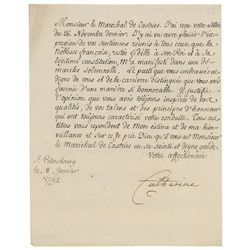 Monsieur le Maréchal de Castries. J'ai reçu votre lettre
du 26. Novembre dernier. J'y ai vu avec plaisir l'ex-
pression de vos sentimens réunis à tous ceux que la
Noblesse françoise, restée fidèle à son Roi et à sa
légitime constitution, M'a manifesté dans une dé-
marche solemnelle. Il ne parle que vous embrassiez
digne de vous et de la carrière distinguée que vous avés
fournie d'une manière si honnorable. Il justifie
l'opinion que vous avés toujours inspirée de vos
qualités, de vos talens et des principes d'honneur
qui ont toujours caractérisé votre conduite. Tous ces
titres vous répondent de Mon estime et de ma bien-
veillance et sur ce je prie Dieu qu'il vous ait Monsieur
le Maréchal de Castries en sa sainte et digne garde
Votre affectionnée
à Petersbourg
le 8. Janvier
1792
Catherine